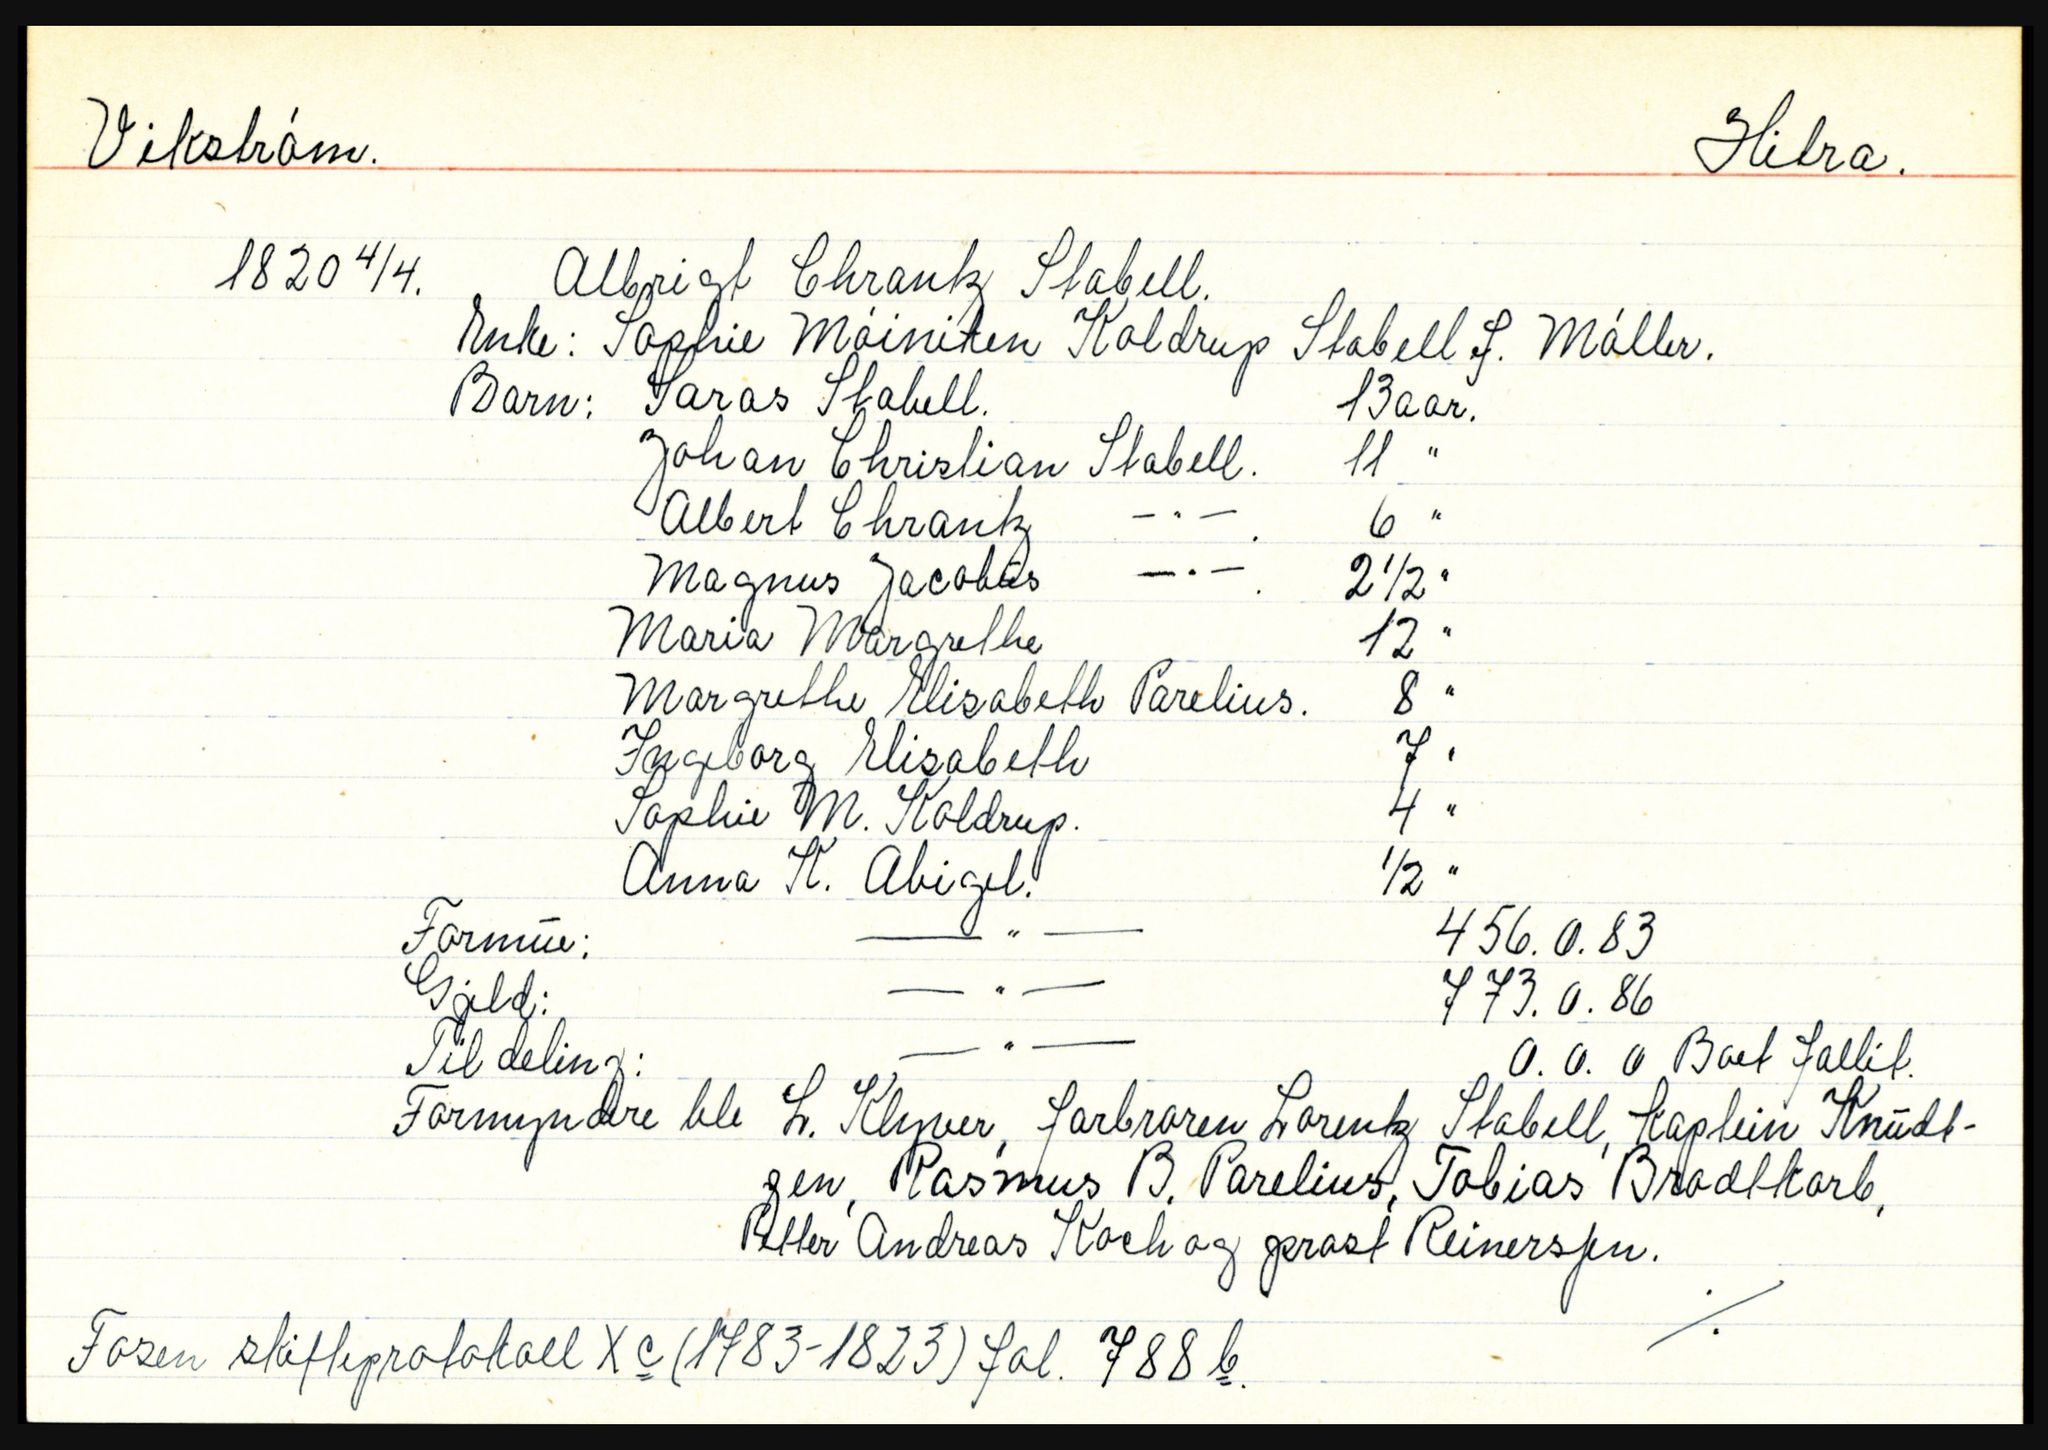 Vikstróm. Hitra.
1820 4/4. Albrigt Chrantz Stabell.
Enke: Sophie Móiniken Koldrup Stabell f. Móller.
Barn: Saras Stabell. 13 aar.
Johan Christian Stabell. 11 "
Albert Chrantz —"—. 6 "
Magnus Jacobus —"—. 2 1/2 "
Maria Margrethe 12 "
Margrethe Elisabeth Parelius. 8 "
Ingeborg Elisabeth 7 "
Sophie M. Koldrup. 4 "
Anna K. Abigel. 1/2 "
Formūe: —"— 456.0.83
Gjeld: —"— 773.0.86
Til deling: —"— 0.0.0 Boet fallit.
Formyndere ble L. Klyver, farbroren Lorentz Stabell, kaptein Knūdt-
zen, Rasmus B. Parelius, Tobias Brodtkorb,
Petter Andreas Koch og prost Reinerssen.
./.
Fosen skifteprotokoll X c (1783-1823) fol. 788 b.